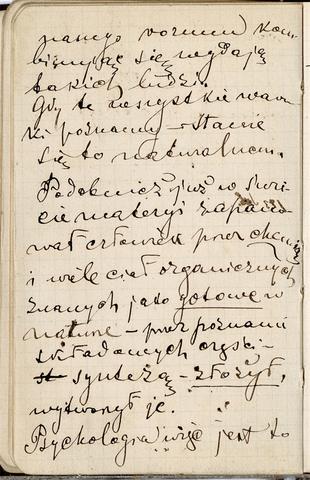 naszego rozumu kom-
binując się wydają
takich ludzi.
Gdy te wszystkie warun
ki poznamy – stanie
się to naturalnem.
Podobnież już w świe-
cie materyi zapano-
wał człowiek przez chemię
i wiele ciał organicznych
znanych jako gotowe w
naturze – przez poznanie
składowych części –
syntezą – złożył,
wytworzył je.
Psychologia więc jest to